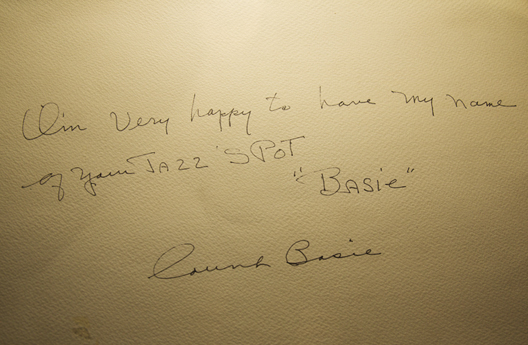 I'm Very happy to have my name
of your JAZZ SPOT
"BASIE"
Count Basie